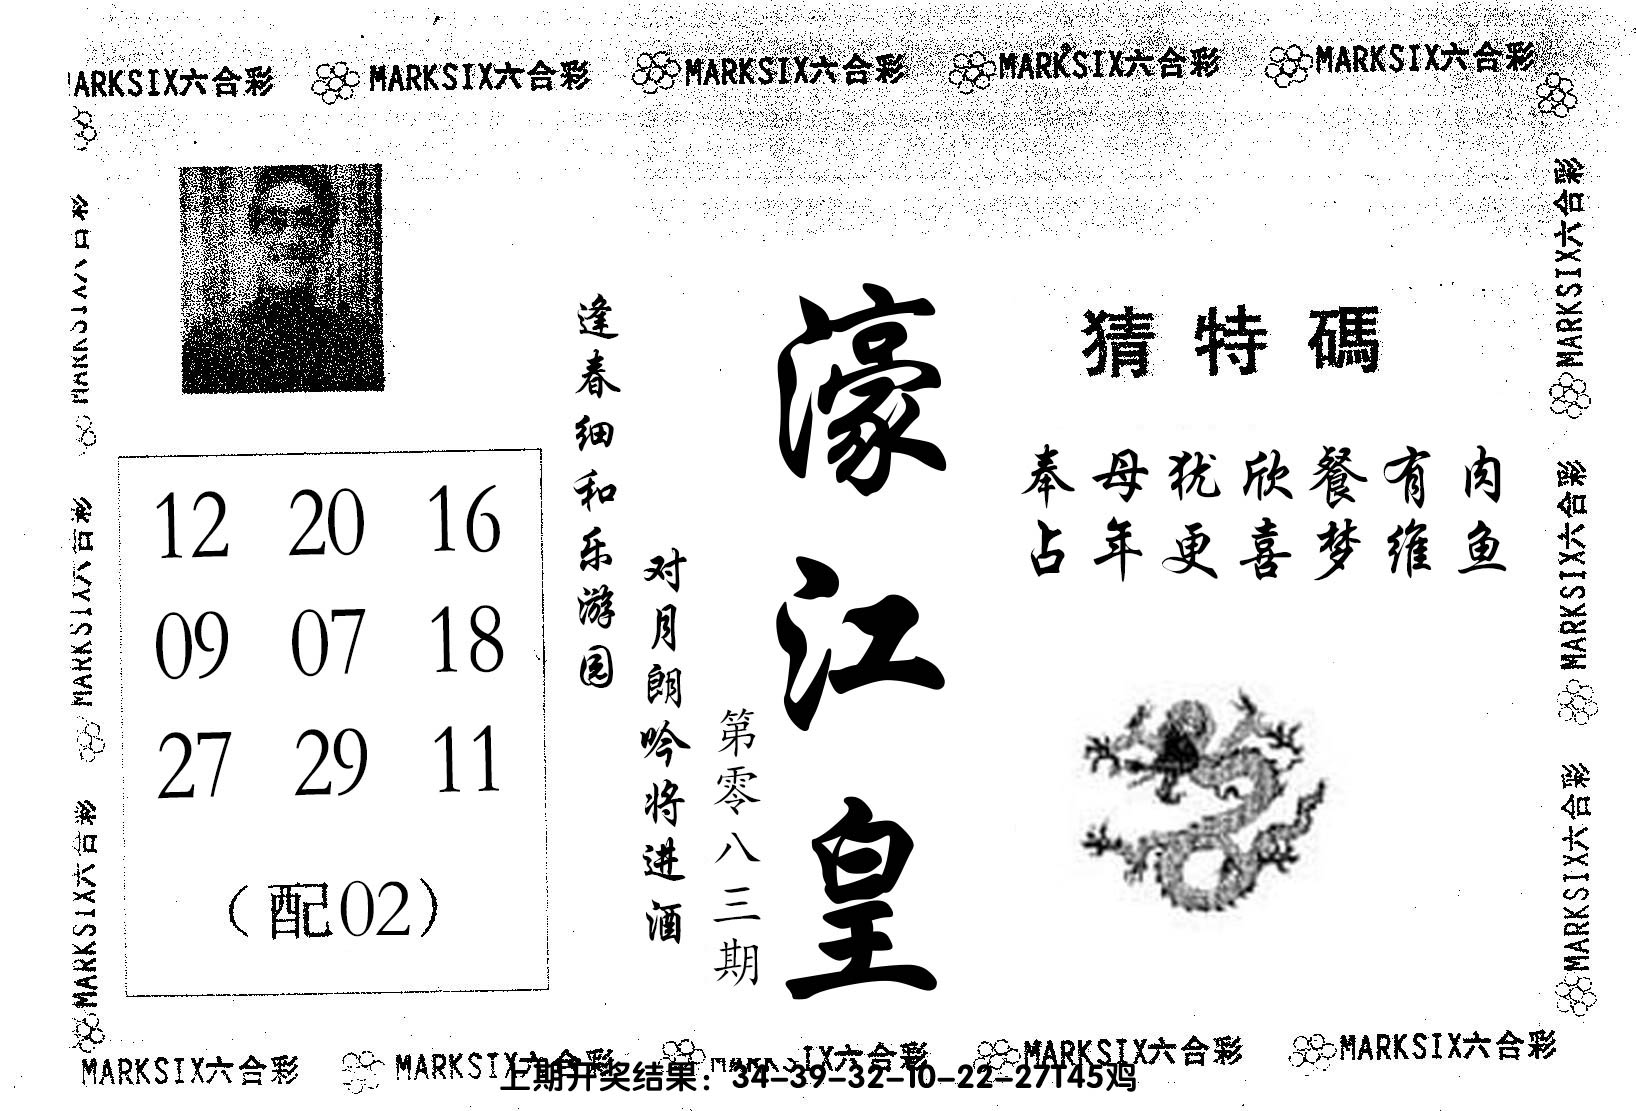 MARKSIX六合彩 MARKSIX六合彩 MARKSIX六合彩 MARKSIX六合彩 MARKSIX六合彩
猜特碼
奉母犹欣餐有肉
占年更喜梦维鱼
濠江皇
第零八三期
对月朗吟将进酒
逢春细和乐游园
12 20 16
09 07 18
27 29 11
（配02）
MARKSIX六合彩
MARKSIX六合彩
MARKSIX六合彩
MARKSIX六合彩
MARKSIX六合彩
MARKSIX六合彩
MARKSIX六合彩 MARKSIX六合彩 MARKSIX六合彩 MARKSIX六合彩 MARKSIX六合彩
上期开奖结果：34-39-32-10-22-27T45鸡